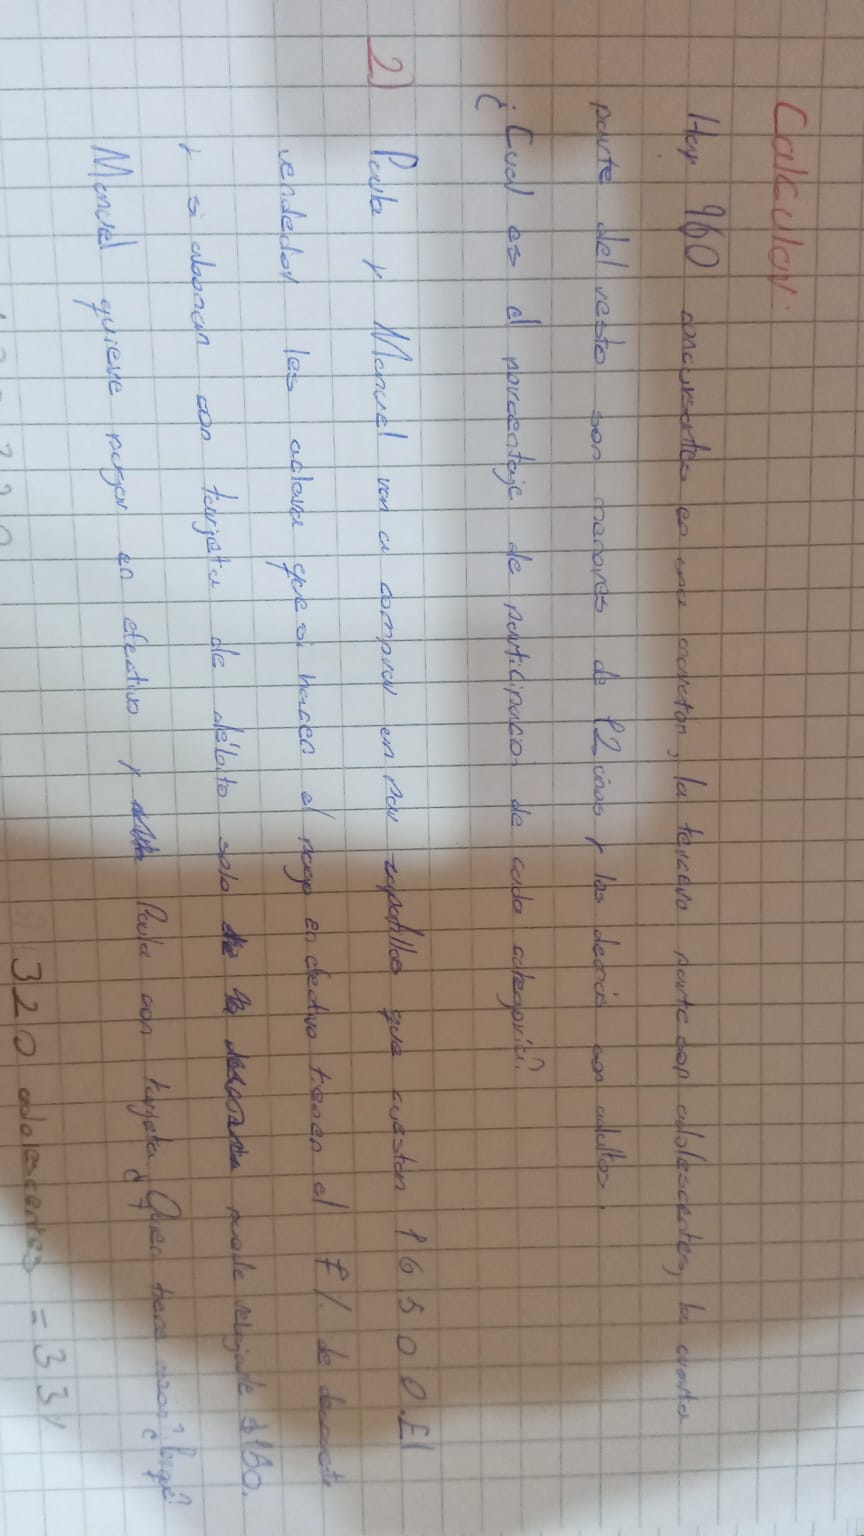 Calcular:
Hay 960 concursantes en una maratón, la tercera parte son adolescentes, la cuarta
parte del resto son menores de 12 años y los demás son adultos.
¿Cual es el porcentaje de participaco de cada categoría?
2) Paula y Manuel van a comprar un par zapatillas que cuestan 16500. El
vendedor les aclara que si hacen el pago en efectivo tienen el 7% de descuento
y si abonan con tarjeta de débito solo puede rebajarle $150.
Manuel quiere pagar en efectivo y Paula con tarjeta ¿Quien tiene razon? ¿Porque?
320 adolescentes = 33%